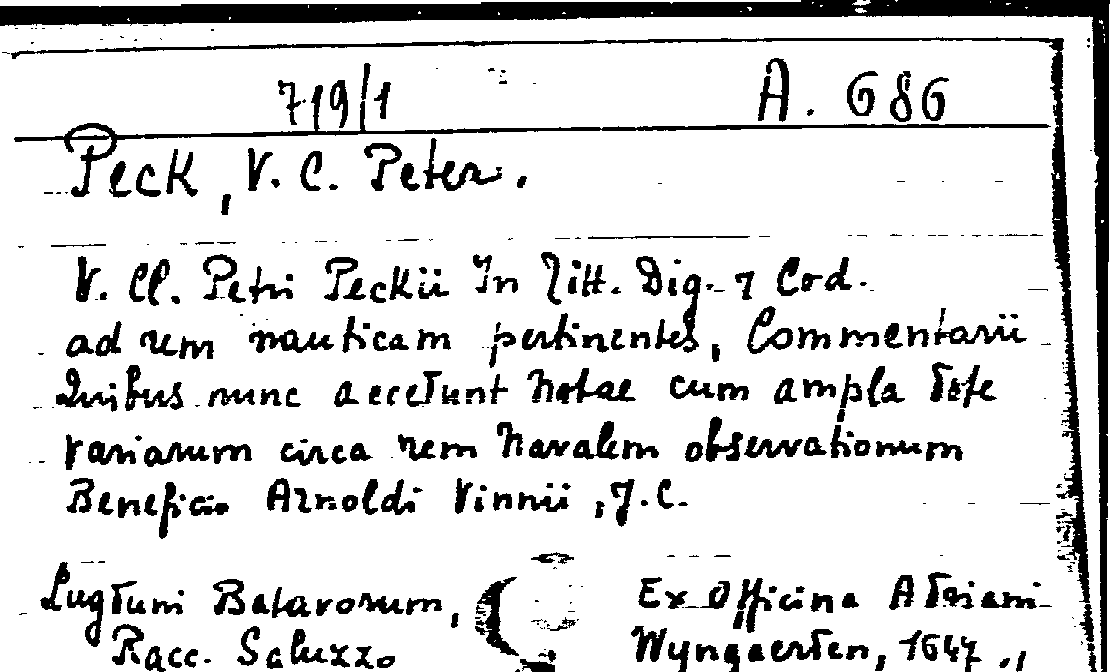 719/1 A. 686
Peck, V. C. Peter.
V. Cl. Petri Peckii In Titt. Dig. 7 Cod.
ad rem nauticam pertinentes, Commentarii
Quibus nunc accedunt Notae cum ampla dote
variarum circa rem Navalem observationum
Beneficio Arnoldi Vinnii, J.C.
Lugduni Batavorum, Ex Officina Adriani
Racc. Saluzzo Wyngaerden, 1647.,